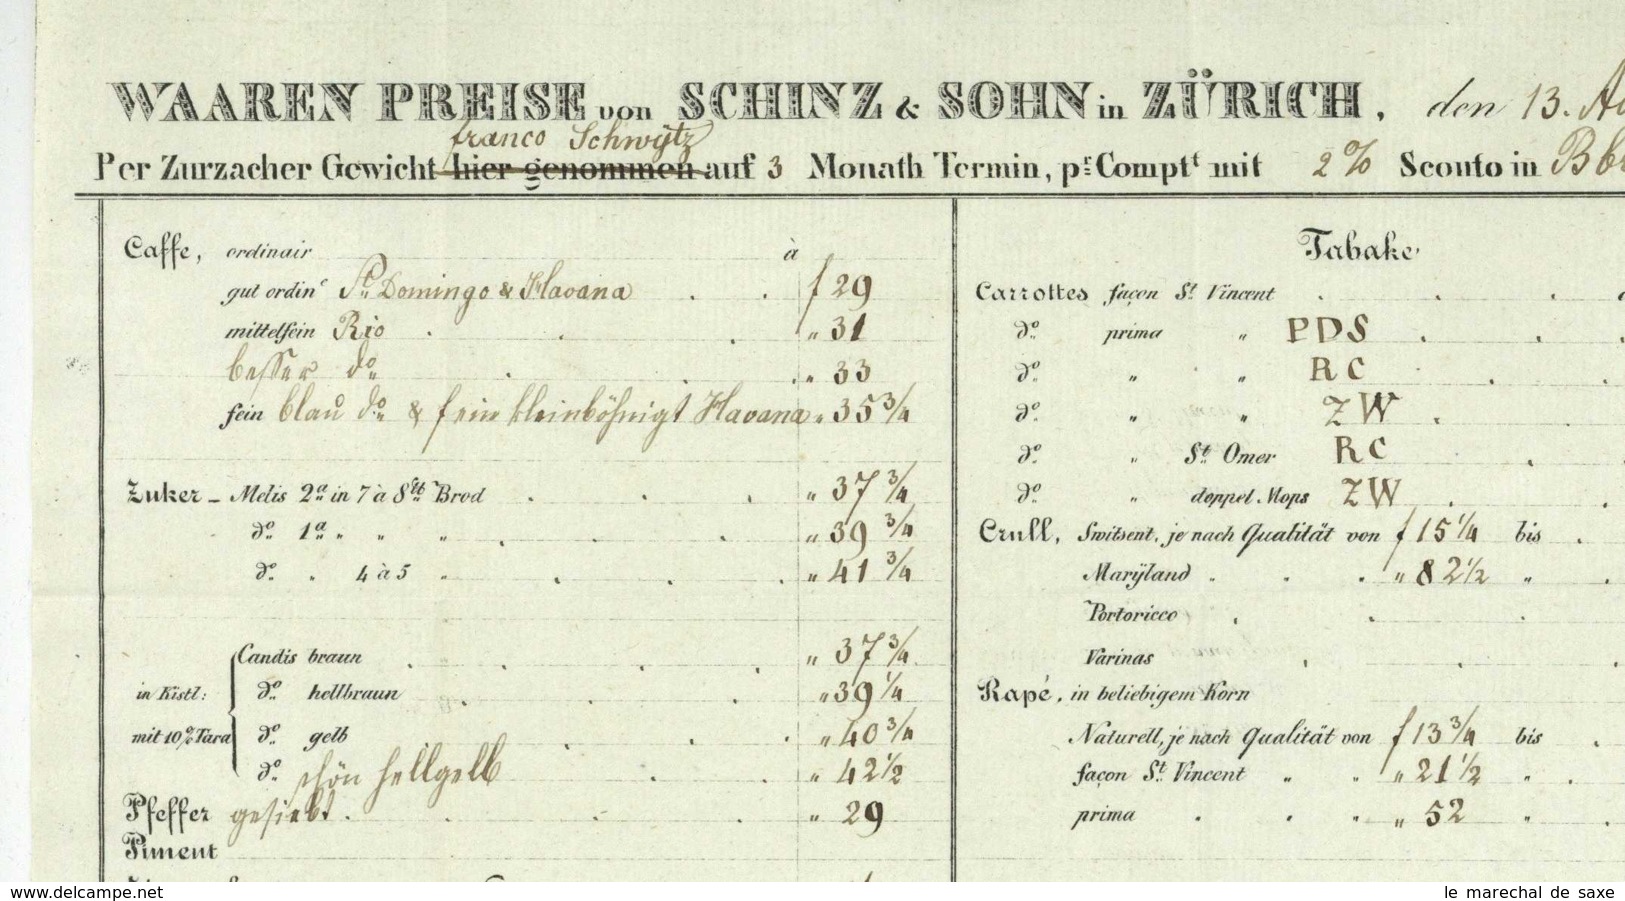 WAAREN PREISE von SCHINZ & SOHN in ZÜRICH, den 13.
franco Schwÿtz
Per Zurzacher Gewicht hier genommen auf 3 Monath Termin, pr Comptt mit 2% Sconto in
Caffe, ordinair à
gut ordine St. Domingo & Havana f 29
mittelfein Rio " 31
besser do " 33
fein blau do & fein kleinböhnigt Havana " 35 3/4
Zuker - Melis 2a in 7 à 8 lb Brod " 37 3/4
do 1a " " " " 39 3/4
do " 4 à 5 " " 41 3/4
Candis braun " 37 3/4
in Kistl: do hellbraun " 39 1/4
mit 10% Tara do gelb " 40 3/4
do schön hellgelb " 42 1/2
Pfeffer gesiebt " 29
Piment
Tabake
Carrottes façon St. Vincent
do prima " PDS
do " " RC
do " " ZW
do " St. Omer RC
do " doppel Mops ZW
Crull, Switsent, je nach Qualität von f 15 1/4 bis
Marÿland " 82 1/2 "
Portoricco
Varinas
Rapé, in beliebigem Korn
Naturell, je nach Qualität von f 13 3/4 bis
façon St. Vincent " " " 21 1/2 "
prima " " 52 "
www.delcampe.net
le marechal de saxe